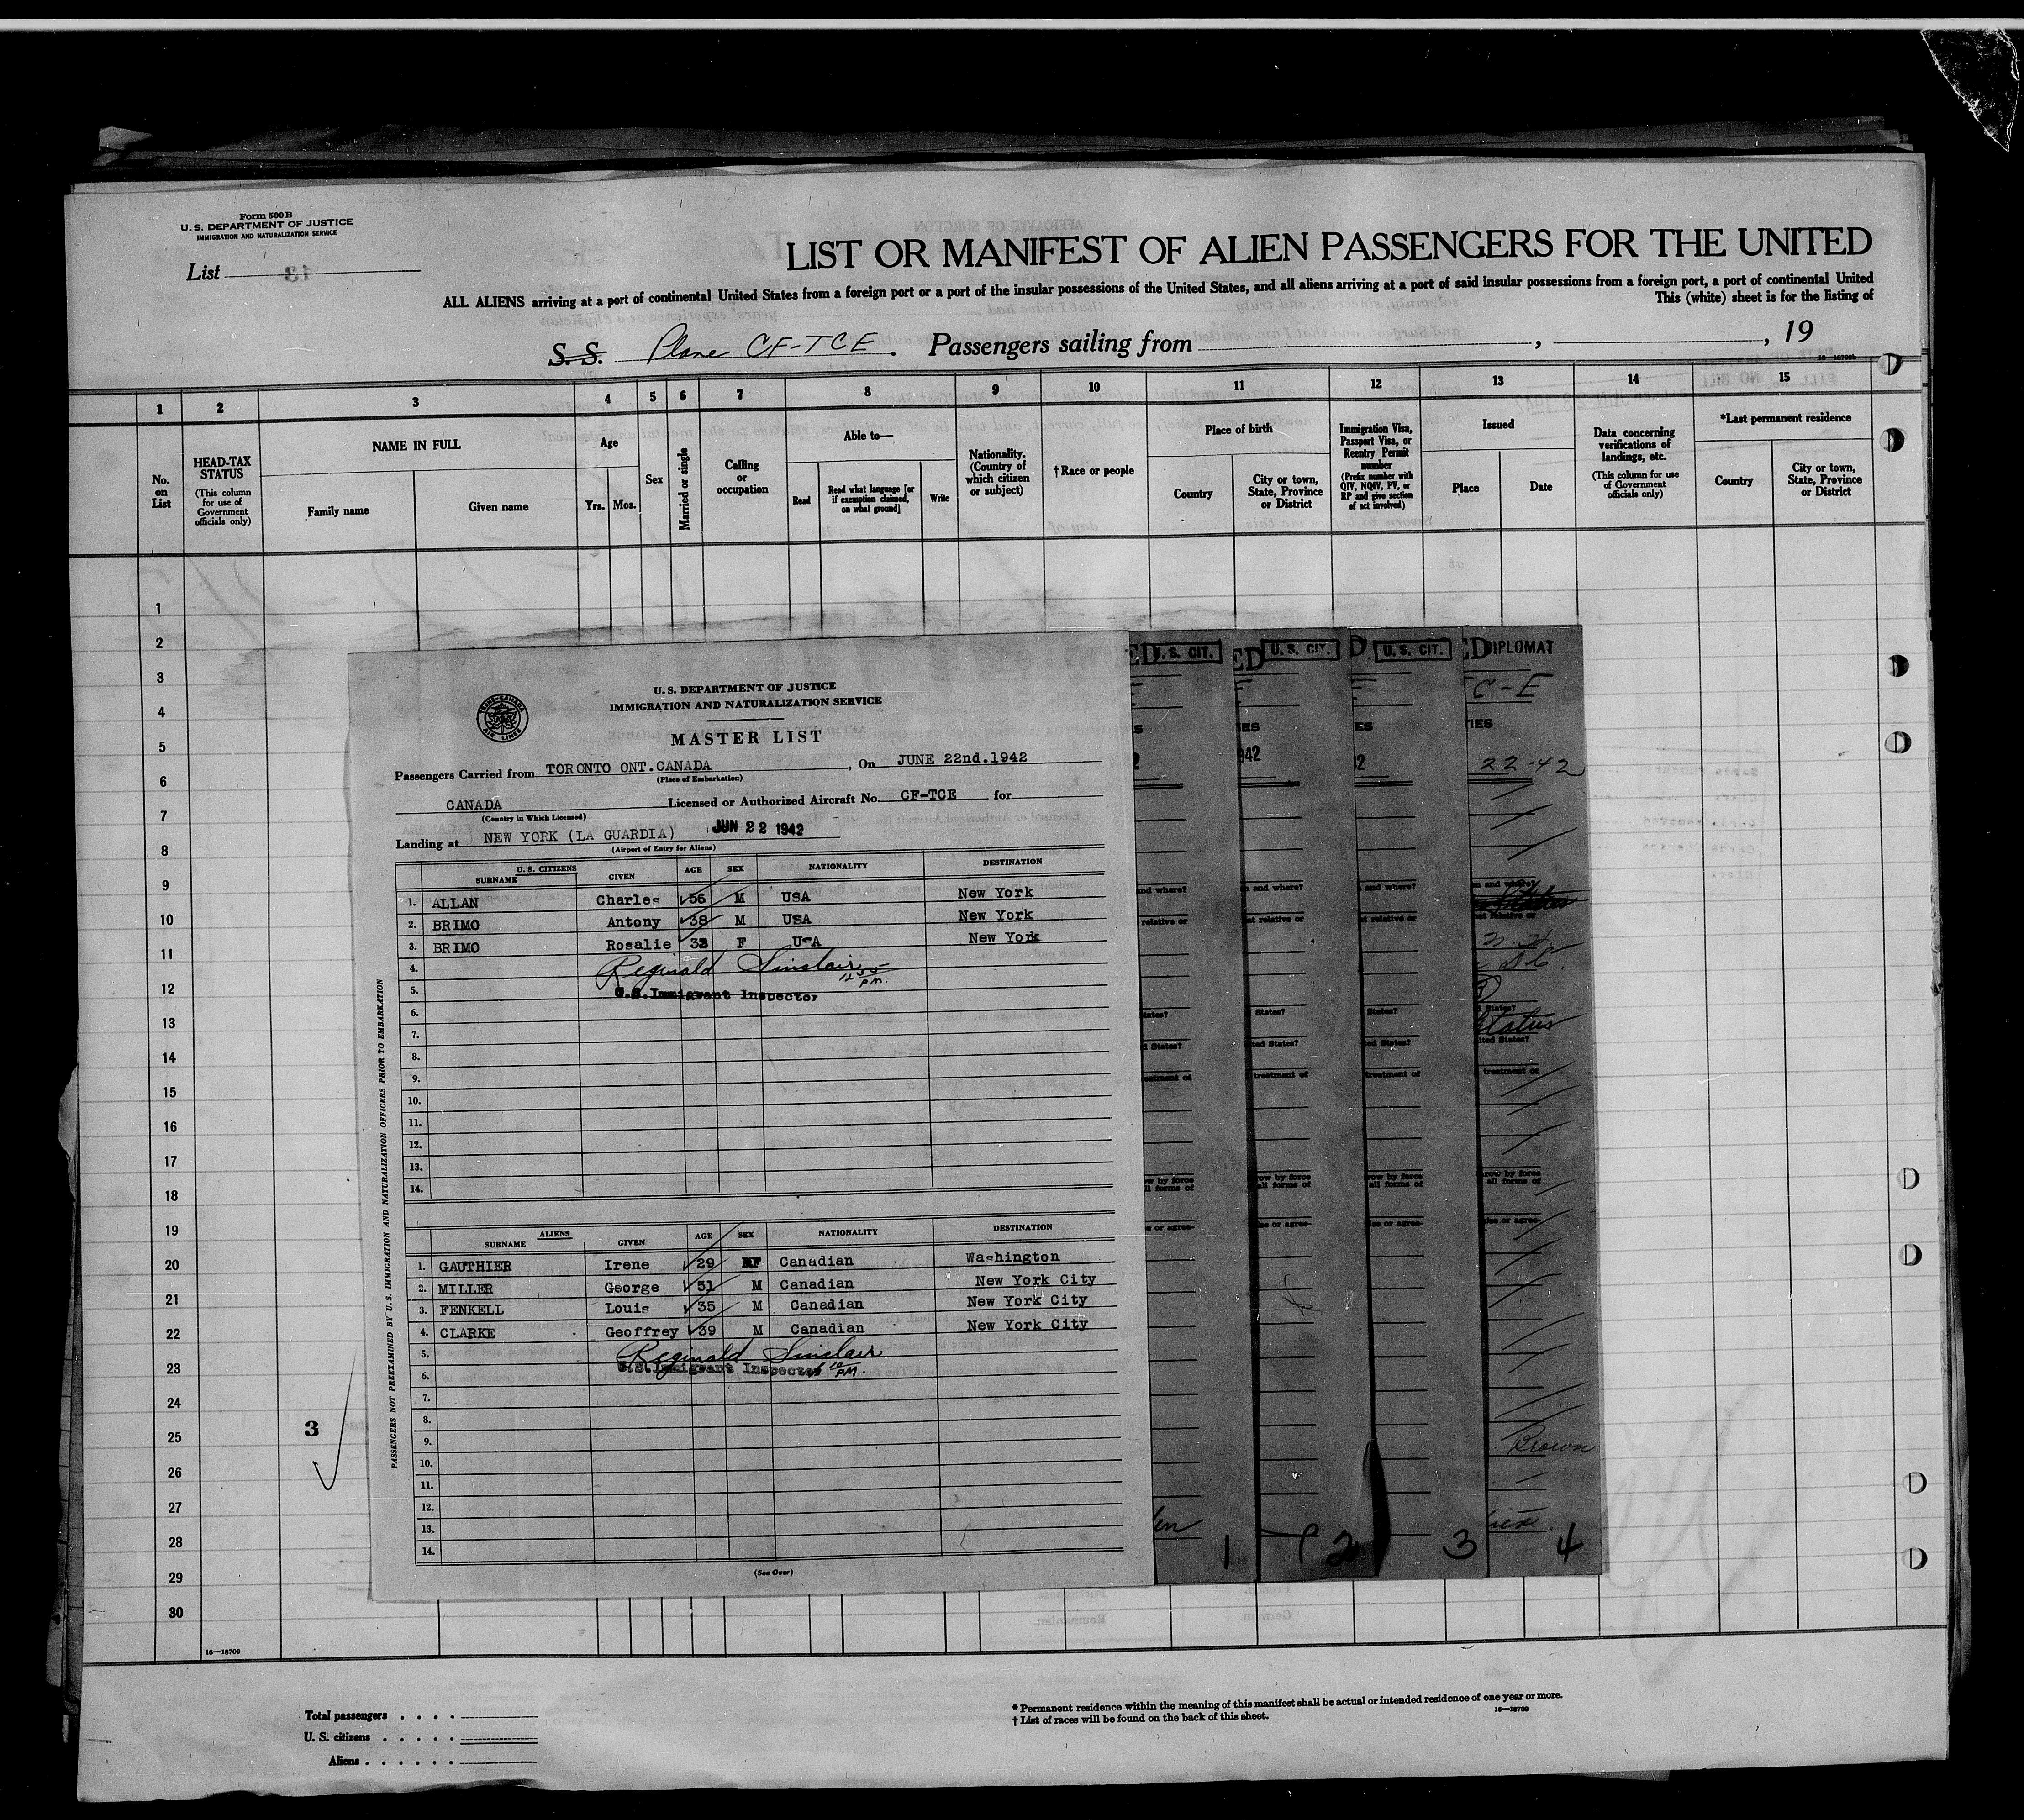 Form 500 B
U. S. DEPARTMENT OF JUSTICE
IMMIGRATION AND NATURALIZATION SERVICE
List
13
LIST OR MANIFEST OF ALIEN PASSENGERS FOR THE UNITED
ALL ALIENS arriving at a port of continental United States from a foreign port or a port of the insular possessions of the United States, and all aliens arriving at a port of said insular possessions from a foreign port, a port of continental United
This (white) sheet is for the listing of
S. S. Plane CF-TCE. Passengers sailing from , , 19
1 2 3 4 5 6 7 8 9 10 11 12 13 14 15
No. on List
HEAD-TAX STATUS
(This column for use of Government officials only)
NAME IN FULL
Family name
Given name
Age
Yrs. Mos.
Sex
Married or single
Calling or occupation
Able to—
Read
Read what language [or if exemption claimed, on what ground]
Write
Nationality. (Country of which citizen or subject)
†Race or people
Place of birth
Country
City or town, State, Province or District
Immigration Visa, Passport Visa, or Reentry Permit number
(Prefix number with QIV, NQIV, PV, or RP and give section of act involved)
Issued
Place
Date
Data concerning verifications of landings, etc.
(This column for use of Government officials only)
*Last permanent residence
Country
City or town, State, Province or District
1
2
3
4
5
6
7
8
9
10
11
12
13
14
15
16
17
18
19
20
21
22
23
24
25
26
27
28
29
30
3
16—18709
TRANS-CANADA AIR LINES
U. S. DEPARTMENT OF JUSTICE
IMMIGRATION AND NATURALIZATION SERVICE
MASTER LIST
Passengers Carried from TORONTO ONT.CANADA, On JUNE 22nd.1942
(Place of Embarkation)
CANADA Licensed or Authorized Aircraft No. CF-TCE for
(Country in Which Licensed)
Landing at NEW YORK (LA GUARDIA) JUN 22 1942
(Airport of Entry for Aliens)
U. S. CITIZENS
SURNAME GIVEN AGE SEX NATIONALITY DESTINATION
1. ALLAN Charles 56 M USA New York
2. BRIMO Antony 38 M USA New York
3. BRIMO Rosalie 33 F USA New York
4. Reginald Sinclair
5. U.S.Immigrant Inspector
6.
7.
8.
9.
10.
11.
12.
13.
14.
ALIENS
SURNAME GIVEN AGE SEX NATIONALITY DESTINATION
1. GAUTHIER Irene 29 F Canadian Washington
2. MILLER George 51 M Canadian New York City
3. FENKELL Louis 35 M Canadian New York City
4. CLARKE Geoffrey 39 M Canadian New York City
5. Reginald Sinclair
6. U.S.Immigrant Inspector PM.
7.
8.
9.
10.
11.
12.
13.
14.
(See Over)
PASSENGERS NOT PREEXAMINED BY U. S. IMMIGRATION AND NATURALIZATION OFFICERS PRIOR TO EMBARKATION
U. S. CIT.
U. S. CIT.
U. S. CIT.
DIPLOMAT
C-E
22-42
Status
Brown
1 2 3 4
Total passengers
U. S. citizens
Aliens
* Permanent residence within the meaning of this manifest shall be actual or intended residence of one year or more.
† List of races will be found on the back of this sheet.
16—18709